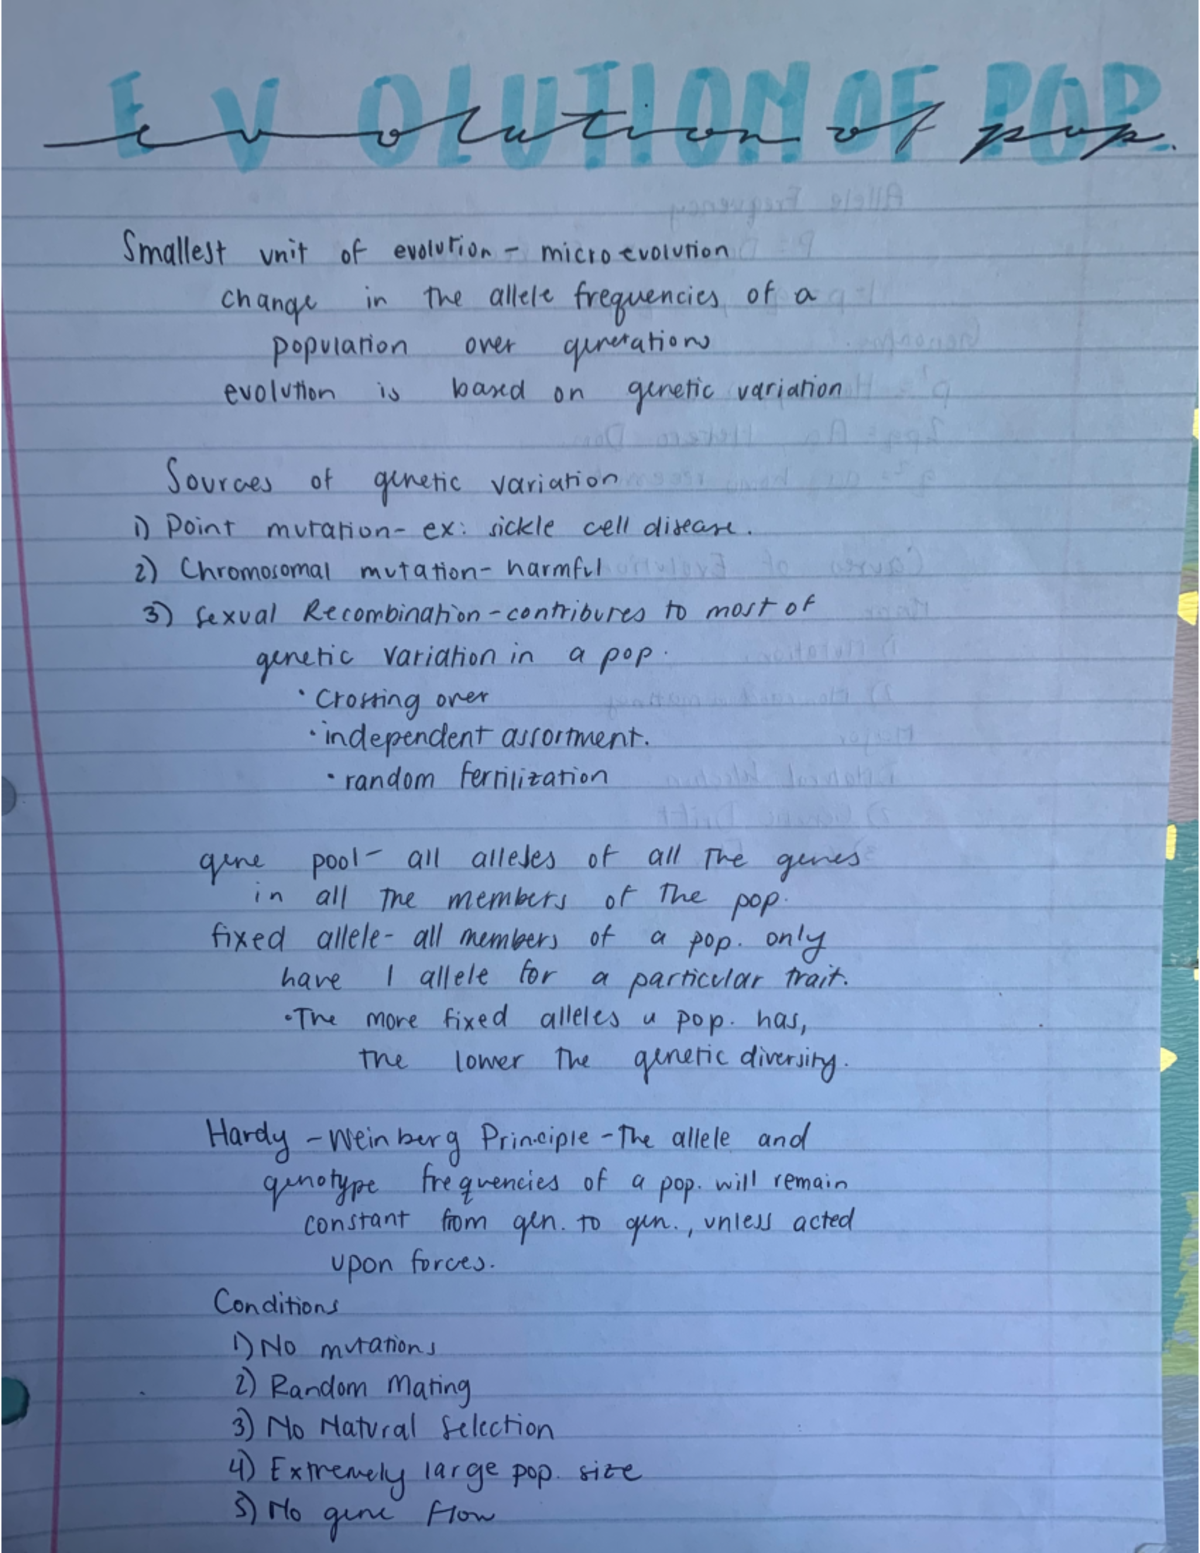 EVOLUTION OF POP.
evolution of pop.
Smallest unit of evolution - microevolution
change in the allele frequencies of a
population over generations
evolution is based on genetic variation
Sources of genetic variation
1) Point mutation - ex: sickle cell disease.
2) Chromosomal mutation - harmful
3) Sexual Recombination - contributes to most of
genetic variation in a pop.
• Crossing over
• independent assortment.
• random fertilization
gene pool - all alleles of all the genes
in all the members of the pop.
fixed allele - all members of a pop. only
have 1 allele for a particular trait.
• The more fixed alleles a pop. has,
the lower the genetic diversity.
Hardy - Weinberg Principle - The allele and
genotype frequencies of a pop. will remain
constant from gen. to gen., unless acted
upon forces.
Conditions
1) No mutations
2) Random Mating
3) No Natural Selection
4) Extremely large pop. size
5) No gene flow